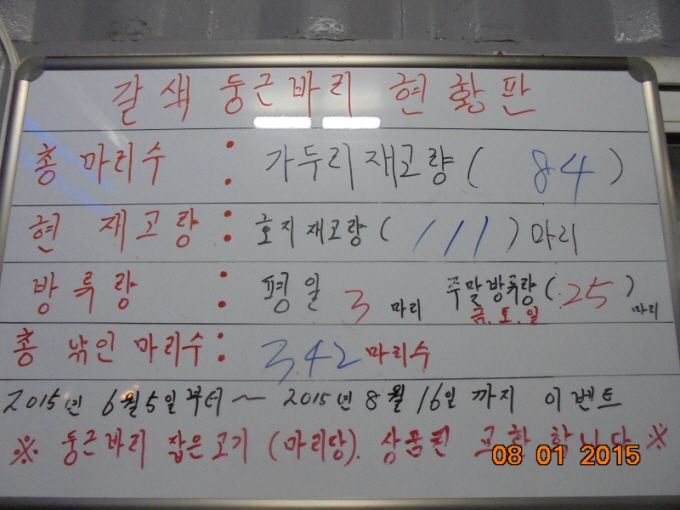 갈색 둥근바리 현황판
총 마리수 : 가두리재고량 ( 84 )
현 재고량 : 호지재고량 ( 111 ) 마리
방류량 : 평일 3 마리 주말방류량 ( 25 ) 마리
금.토.일
총 낚인 마리수 : 342 마리수
2015년 6월5일부터 ~ 2015년 8월 16일 까지 이벤트
※ 둥근바리 잡은고기 (마리당). 상품권 교환 합니다 ※
08 01 2015